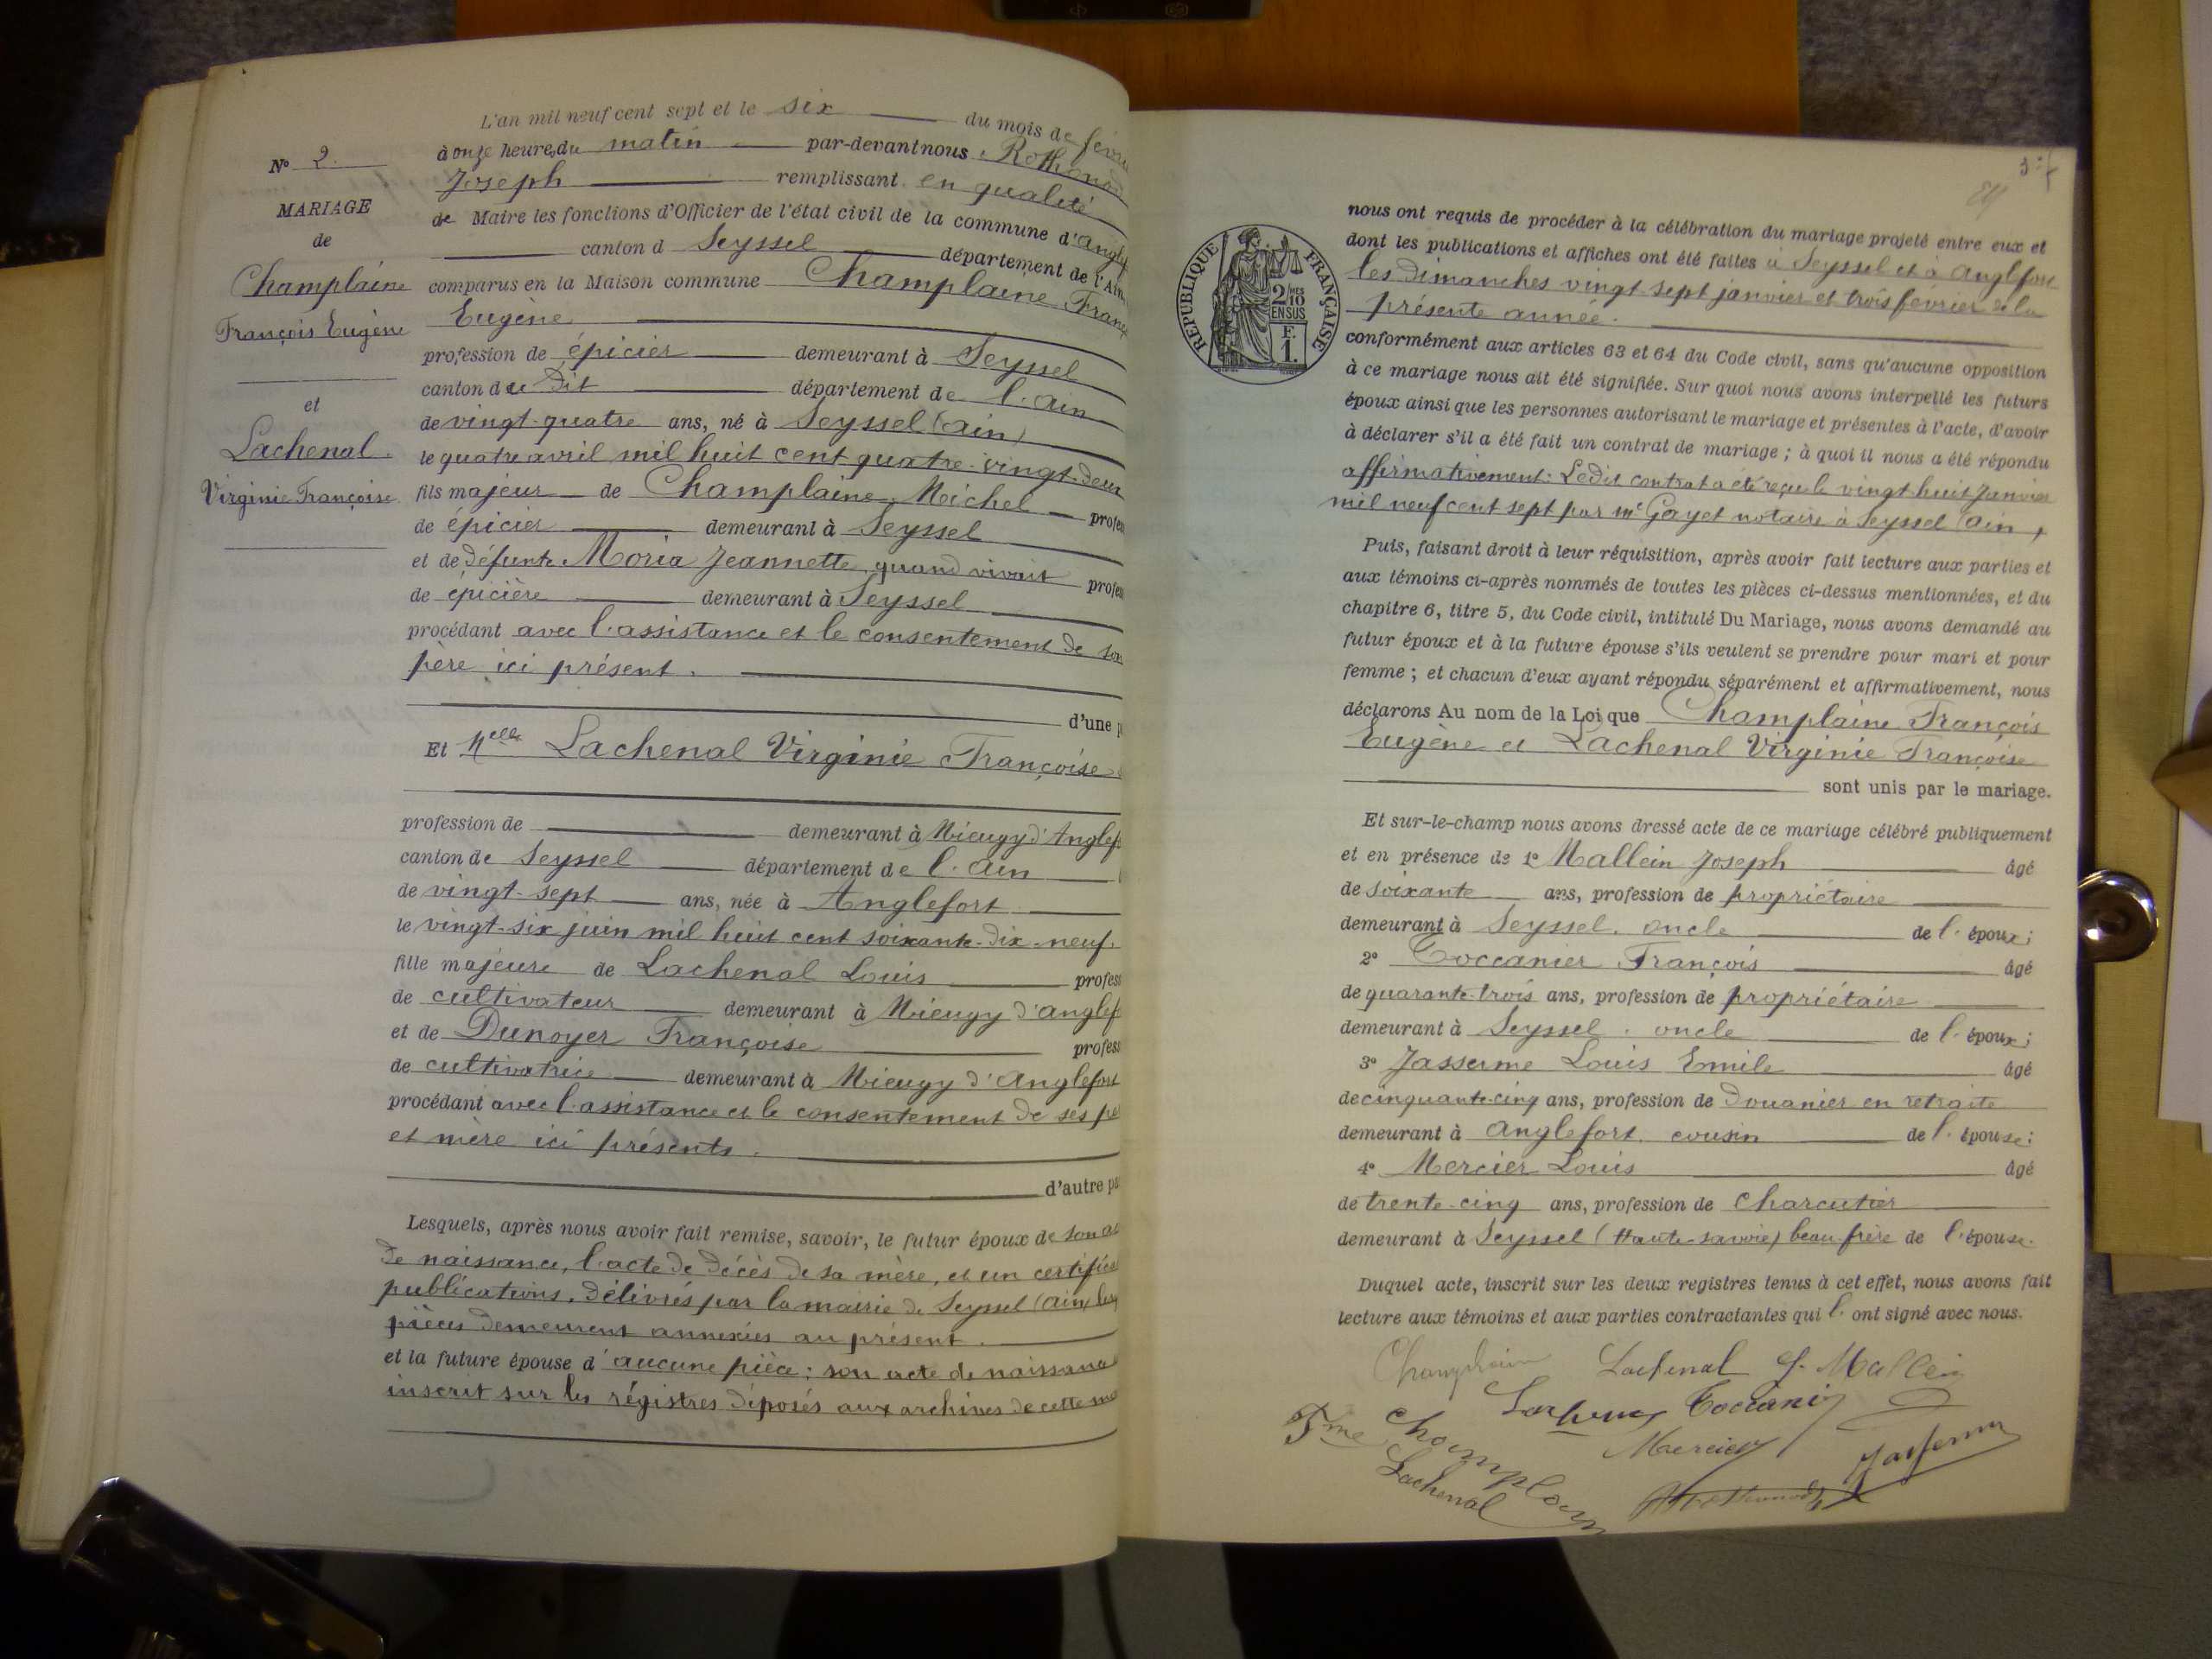 L'an mil neuf cent sept et le six du mois de févri
à onze heures du matin par-devant nous Rothonod
Joseph remplissant en qualité
de Maire les fonctions d'Officier de l'état civil de la commune d'Anglef
canton d Seyssel département de l'Ain
comparus en la Maison commune Champlaine Franç
Eugène
profession de épicier demeurant à Seyssel
canton du dit département de l'Ain
de vingt-quatre ans, né à Seyssel (Ain)
le quatre avril mil huit cent quatre-vingt-deux
fils majeur de Champlaine Michel profes
de épicier demeurant à Seyssel
et de défunte Moria Jeannette, quand vivait profes
de épicière demeurant à Seyssel
procédant avec l'assistance et le consentement de son
père ici présent.
d'une p
Et Melle Lachenal Virginie Françoise
profession de demeurant à Mieugy d'Anglef
canton de Seyssel département de l'Ain
de vingt-sept ans, née à Anglefort
le vingt-six juin mil huit cent soixante-dix-neuf.
fille majeure de Lachenal Louis profess
de cultivateur demeurant à Mieugy d'Anglef
et de Dunoyer Françoise profess
de cultivatrice demeurant à Mieugy d'Anglefort
procédant avec l'assistance et le consentement de ses pè
et mère ici présents.
d'autre pa
Lesquels, après nous avoir fait remise, savoir, le futur époux de son ac
de naissance, l'acte de décès de sa mère, et un certificat
publications, délivrés par la mairie de Seyssel (Ain) lesq
pièces demeurent annexées au présent.
et la future épouse d'aucune pièce; son acte de naissance
inscrit sur les régistres déposés aux archives de cette ma
No 2.
MARIAGE
de
Champlaine
François Eugène
et
Lachenal
Virginie Françoise
RÉPUBLIQUE FRANÇAISE
2/10
EN SUS
F.
1.
nous ont requis de procéder à la célébration du mariage projeté entre eux et
dont les publications et affiches ont été faites à Seyssel et à Anglefort
les dimanches vingt-sept janvier et trois février de la
présente année.
conformément aux articles 63 et 64 du Code civil, sans qu'aucune opposition
à ce mariage nous ait été signifiée. Sur quoi nous avons interpellé les futurs
époux ainsi que les personnes autorisant le mariage et présentes à l'acte, d'avoir
à déclarer s'il a été fait un contrat de mariage ; à quoi il nous a été répondu
affirmativement: Ledit contrat a été reçu le vingt-huit Janvier
mil neuf cent sept par Me Gayet notaire à Seyssel (Ain)
Puis, faisant droit à leur réquisition, après avoir fait lecture aux parties et
aux témoins ci-après nommés de toutes les pièces ci-dessus mentionnées, et du
chapitre 6, titre 5, du Code civil, intitulé Du Mariage, nous avons demandé au
futur époux et à la future épouse s'ils veulent se prendre pour mari et pour
femme ; et chacun d'eux ayant répondu séparément et affirmativement, nous
déclarons Au nom de la Loi que Champlaine François
Eugène et Lachenal Virginie Françoise
sont unis par le mariage.
Et sur-le-champ nous avons dressé acte de ce mariage célébré publiquement
et en présence de 1° Mallein Joseph âgé
de soixante ans, profession de propriétaire
demeurant à Seyssel, oncle de l'époux;
2° Toccanier François âgé
de quarante-trois ans, profession de propriétaire
demeurant à Seyssel, oncle de l'époux;
3° Jasserme Louis Emile âgé
de cinquante-cinq ans, profession de douanier en retraite
demeurant à Anglefort, cousin de l'épouse;
4° Mercier Louis âgé
de trente-cinq ans, profession de Charcutier
demeurant à Seyssel (Haute-Savoie) beau-frère de l'épouse.
Duquel acte, inscrit sur les deux registres tenus à cet effet, nous avons fait
lecture aux témoins et aux parties contractantes qui l'ont signé avec nous.
Lachenal J. Mallein
Mercier
Lachenal